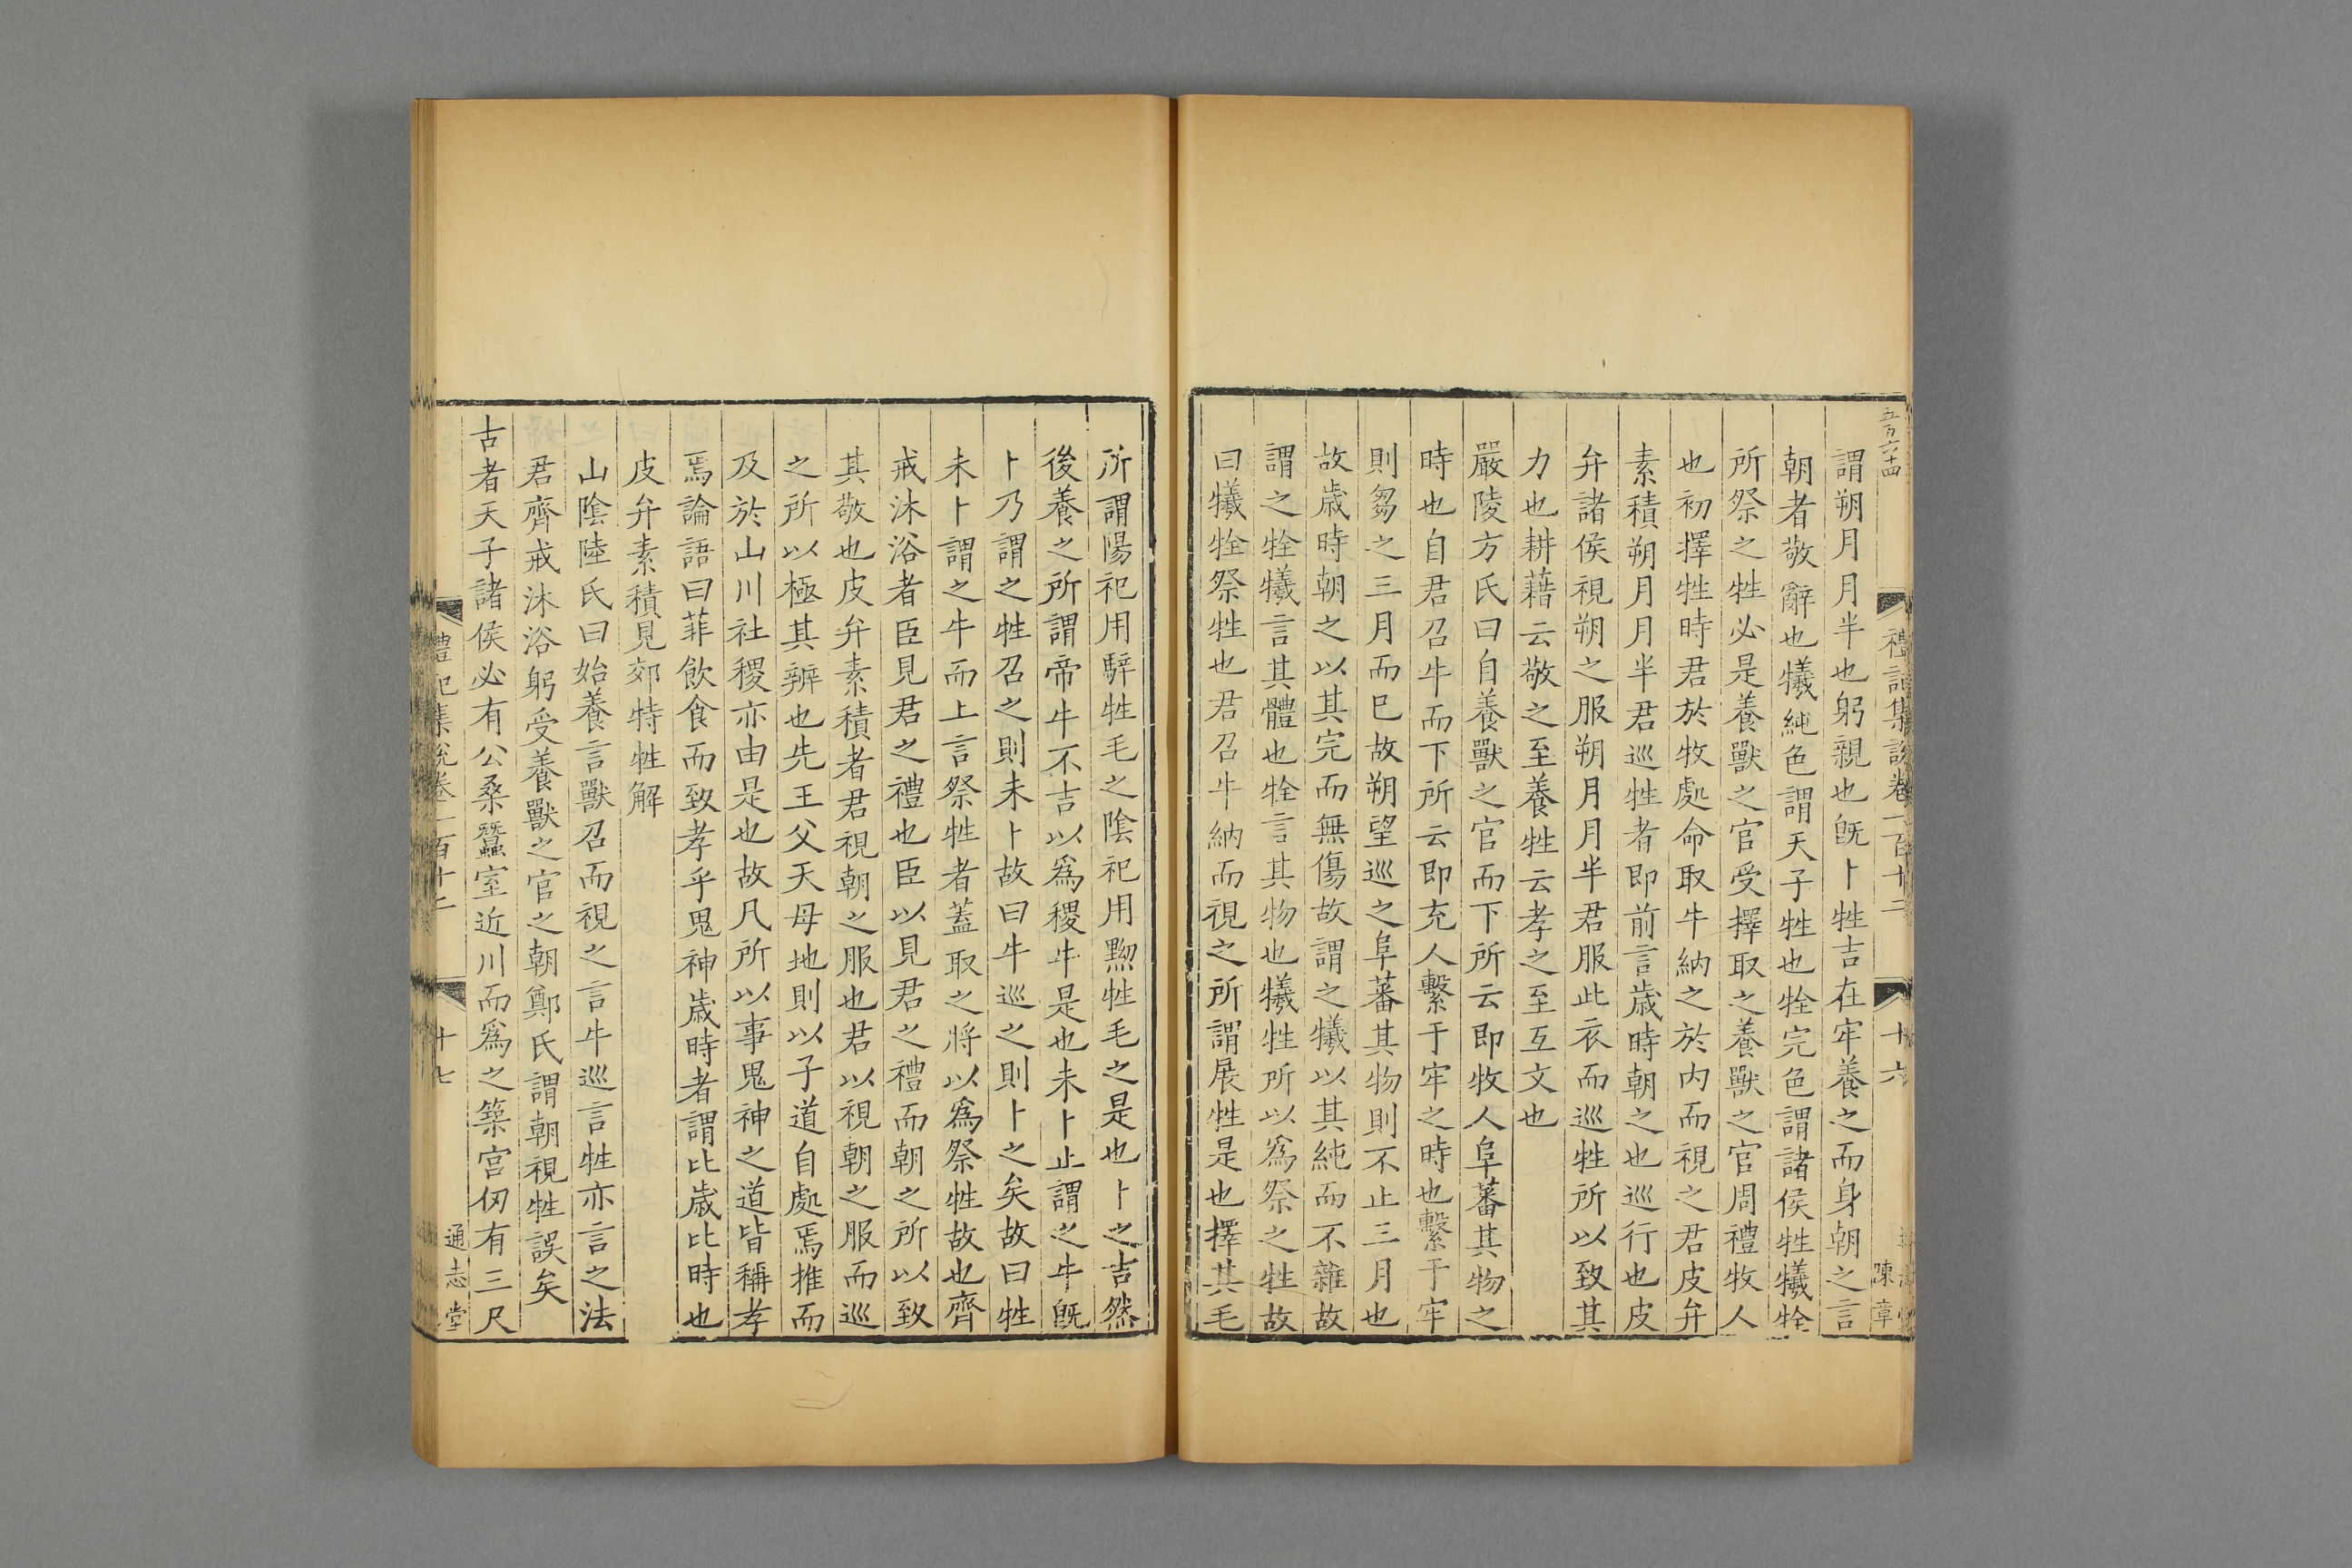 五百六十四
禮記集說卷一百十二
十六
陳章
謂朔月月半也躬親也旣卜牲吉在牢養之而身朝之言
朝者敬辭也犧純色謂天子牲也牷完色謂諸侯牲犧牷
所祭之牲必是養獸之官受擇取之養獸之官周禮牧人
也初擇牲時君於牧處命取牛納之於內而視之君皮弁
素積朔月月半君巡牲者即前言歲時朝之也巡行也皮
弁諸侯視朔之服朔月月半君服此衣而巡牲所以致其
力也耕藉云敬之至養牲云孝之至互文也
嚴陵方氏曰自養獸之官而下所云即牧人阜蕃其物之
時也自君召牛而下所云即充人繫于牢之時也繫于牢
則芻之三月而巳故朔望巡之阜蕃其物則不止三月也
故歲時朝之以其完而無傷故謂之犧以其純而不雜故
謂之牷犧言其體也牷言其物也犧牲所以爲祭之牲故
曰犧牷祭牲也君召牛納而視之所謂展牲是也擇其毛
所謂陽祀用騂牲毛之陰祀用黝牲毛之是也卜之吉然
後養之所謂帝牛不吉以爲稷牛是也未卜止謂之牛旣
卜乃謂之牲召之則未卜故曰牛巡之則卜之矣故曰牲
未卜謂之牛而上言祭牲者蓋取之將以爲祭牲故也齊
戒沐浴者臣見君之禮也臣以見君之禮而朝之所以致
其敬也皮弁素積者君視朝之服也君以視朝之服而巡
之所以極其辨也先王父天母地則以子道自處焉推而
及於山川社稷亦由是也故凡所以事鬼神之道皆稱孝
焉論語曰菲飲食而致孝乎鬼神歲時者謂比歲比時也
皮弁素積見郊特牲解
山陰陸氏曰始養言獸召而視之言牛巡言牲亦言之法
君齊戒沐浴躬受養獸之官之朝鄭氏謂朝視牲誤矣
古者天子諸侯必有公桑蠶室近川而爲之築宮仞有三尺
禮記集說卷一百十二
十七
通志堂